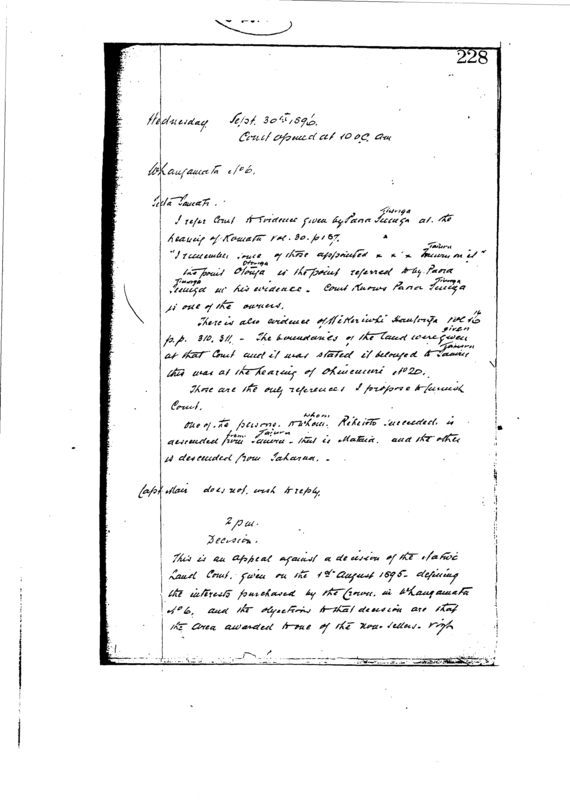 228
Wednesday Sept. 30th 1896.
Court opened at 10 o'c. am
Whangamata No 6.
I refer Court to Evidence given by Pana at the
hearing of Komata Vol. 30. p 157.
"I remember one of those appointed x x x Taiuru on it"
the point Otonga is the point referred to by Pana
in his evidence. Court knows Pana
is one of the owners.
There is also evidence of Vol 16
p.p. 310, 311. - The boundaries of the land were given
at that Court and it was stated it belonged to Taiuru
this was at the hearing of Ohinemuri No 20.
Those are the only references I propose to furnish
Court.
One of the persons to whom succeeded is
descended from Taiuru - that is and the other
is descended from
Capt Mair does not wish to reply.
2 pm.
Decision.
This is an appeal against a decision of the Native
Land Court given on the 1st August 1895 - defining
the interests purchased by the Crown in Whangamata
No 6, and the objections to that decision are that
the area awarded to one of the non-sellers